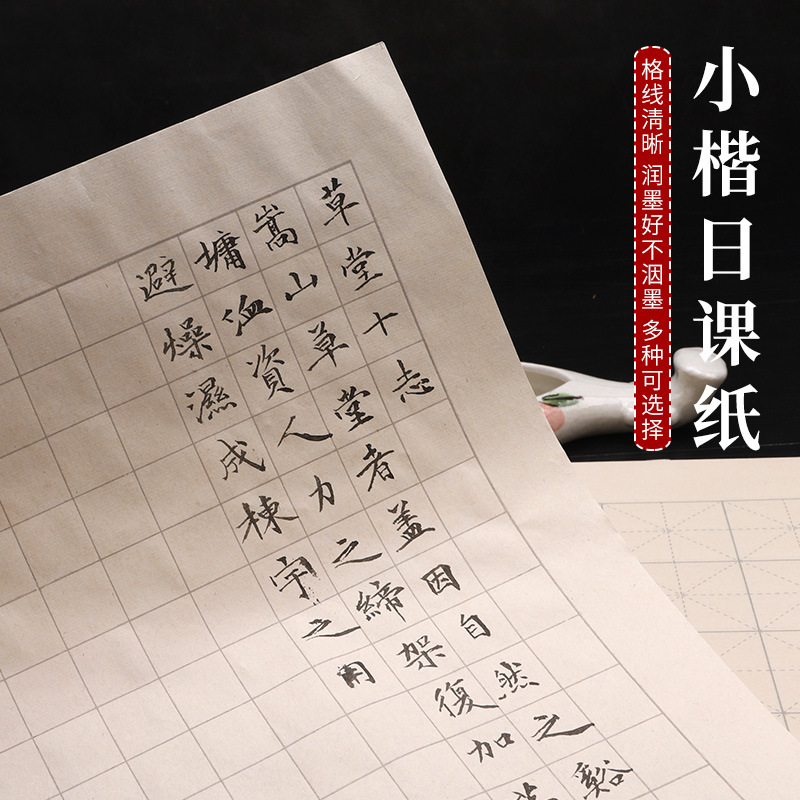 小楷日课纸
格线清晰 润墨好不洇墨 多种可选择
草堂十志
嵩山草堂者盖因自然之谿
墉洫資人力之締架復加
避燥濕成棟宇之用